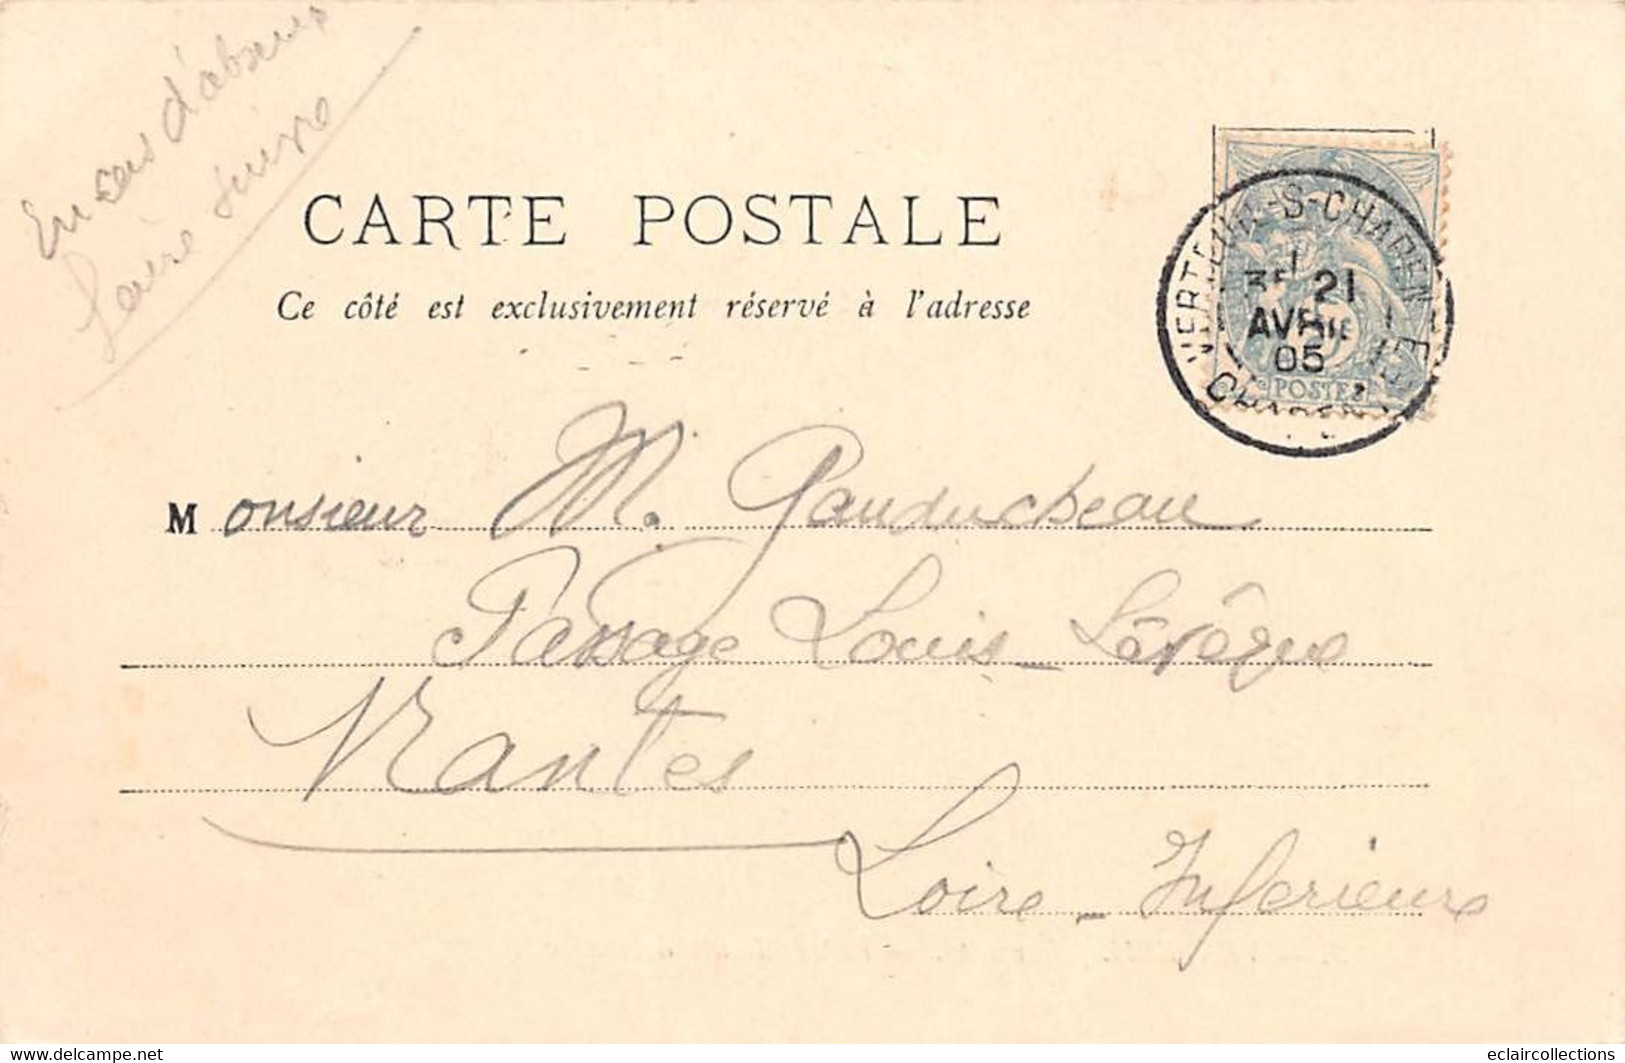 En cas d'absence
faire suivre
CARTE POSTALE
Ce côté est exclusivement réservé à l'adresse
VERTEUIL-S-CHARENTE
3E 21
AVRIL
05
POSTES
Monsieur M. Gauducheau
Passage Louis-Lévêque
Nantes
Loire-Inférieure
www.delcampe.net
eclaircollections